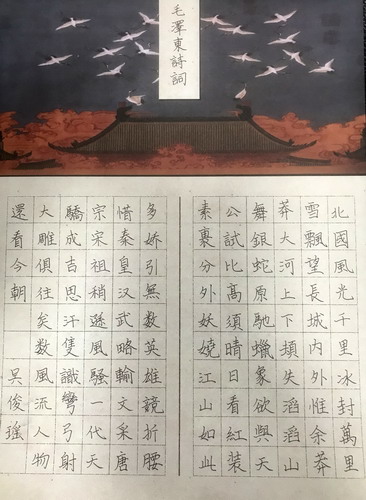 毛澤東詩詞
北國風光千里冰封萬里
雪飄望長城內外惟余莽
莽大河上下頓失滔滔山
舞銀蛇原馳蠟象欲與天
公試比高須晴日看紅裝
素裹分外妖嬈江山如此
多娇引無数英雄競折腰
惜秦皇汉武略輸文采唐
宗宋祖稍遜風騷一代天
驕成吉思汗隻識彎弓射
大雕俱往矣数風流人物
還看今朝
吳俊瑤